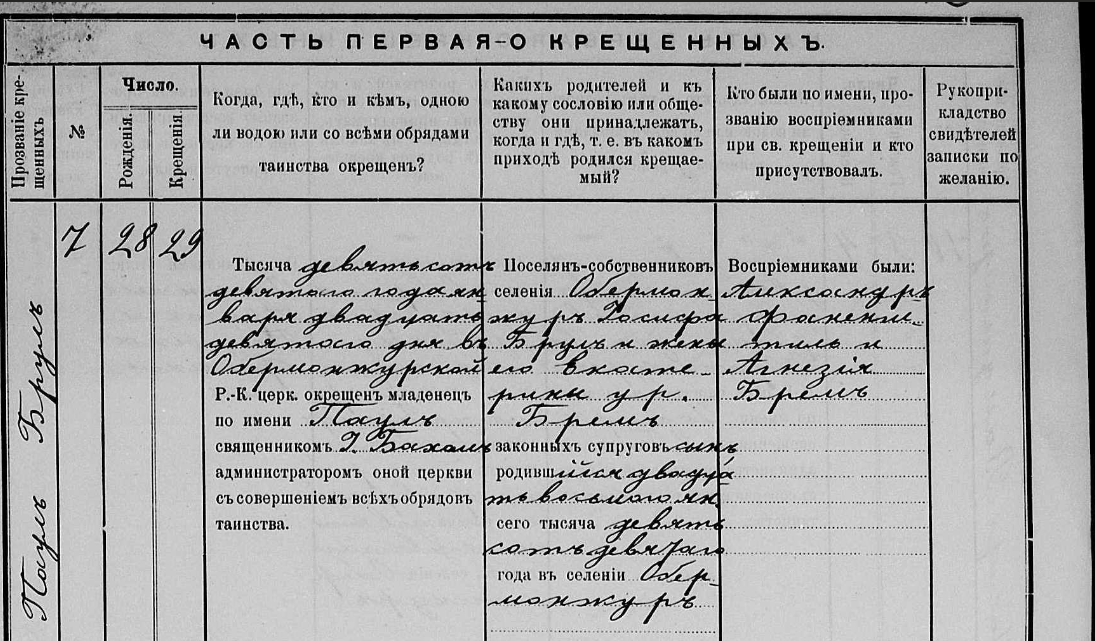 ЧАСТЬ ПЕРВАЯ-О КРЕЩЕННЫХЪ.
Прозваніе кре-
щенныхъ
№
Число.
Рожденія.
Крещенія.
Когда, гдѣ, кто и кѣмъ, одною
ли водою или со всѣми обрядами
таинства окрещенъ?
Какихъ родителей и къ
какому сословію или обще-
ству они принадлежатъ,
когда и гдѣ, т. е. въ какомъ
приходѣ родился крещае-
мый?
Кто были по имени, про-
званію воспріемниками
при св. крещеніи и кто
присутствовалъ.
Рукопри-
кладство
свидѣтелей
записки по
желанію.
Паулъ Брулъ
7
28
29
Тысяча девятьсотъ
девятого года ян
варя двадцать
девятого дня въ
Обермонжурской
Р.-К. церк. окрещенъ младенецъ
по имени Паулъ
священникомъ І. Бахомъ
администраторомъ оной церкви
съ совершеніемъ всѣхъ обрядовъ
таинства.
Поселянъ-собственниковъ
селенія Обермон
журъ Іосифа
Брулъ и жены
его Екате-
рины ур.
Бремъ
законныхъ супруговъ сынъ
родившійся двадца
ть восьмого ян.
сего тысяча девять
сотъ девятаго
года въ селеніи Обер-
монжуръ
Воспріемниками были:
Александръ
тиль и
Агнезія
Бремъ